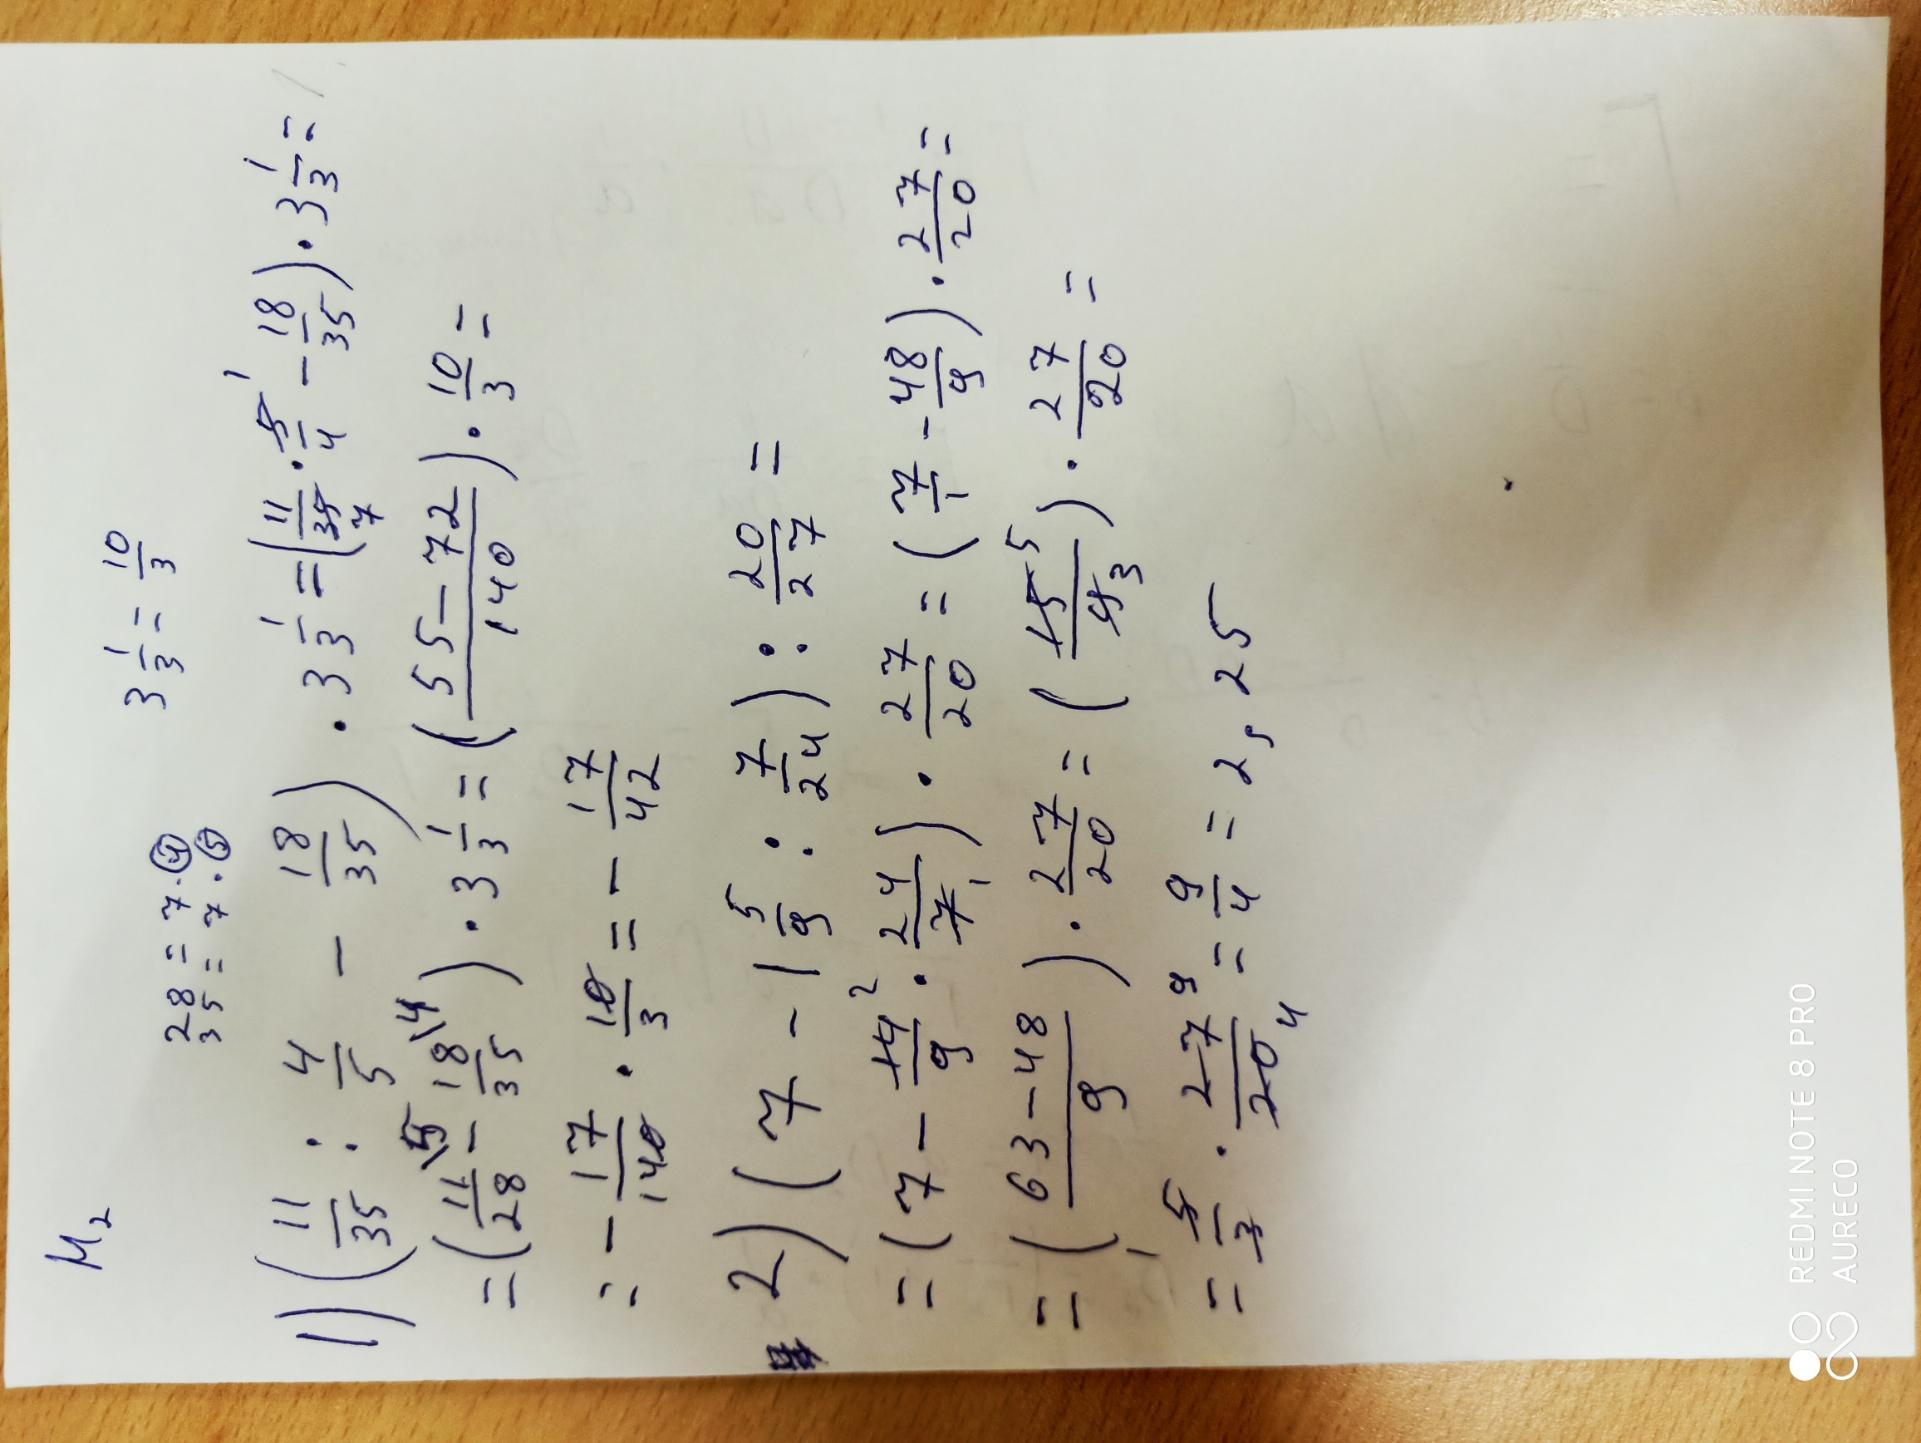 M₂
28 = 7 · ④ 3 1/3 = 10/3
35 = 7 · ⑤
1) (11/35 : 4/5 - 18/35) · 3 1/3 = (11/35 7 · 5/4 1 - 18/35) · 3 1/3 =
= (11/28 \5 - 18/35 \4) · 3 1/3 = (55-72/140) · 10/3 =
= - 17/140 · 10/3 = - 17/42
2) (7 - 1 5/9 : 7/24) : 20/27 =
= (7 - 14/9 2 · 24/7 1) · 27/20 = (7/1 - 48/9) · 27/20 =
= (63-48/9) · 27/20 = (15/9 5 3) · 27/20 =
= 5/3 1 · 27/20 9 4 = 9/4 = 2,25
REDMI NOTE 8 PRO
AURECO